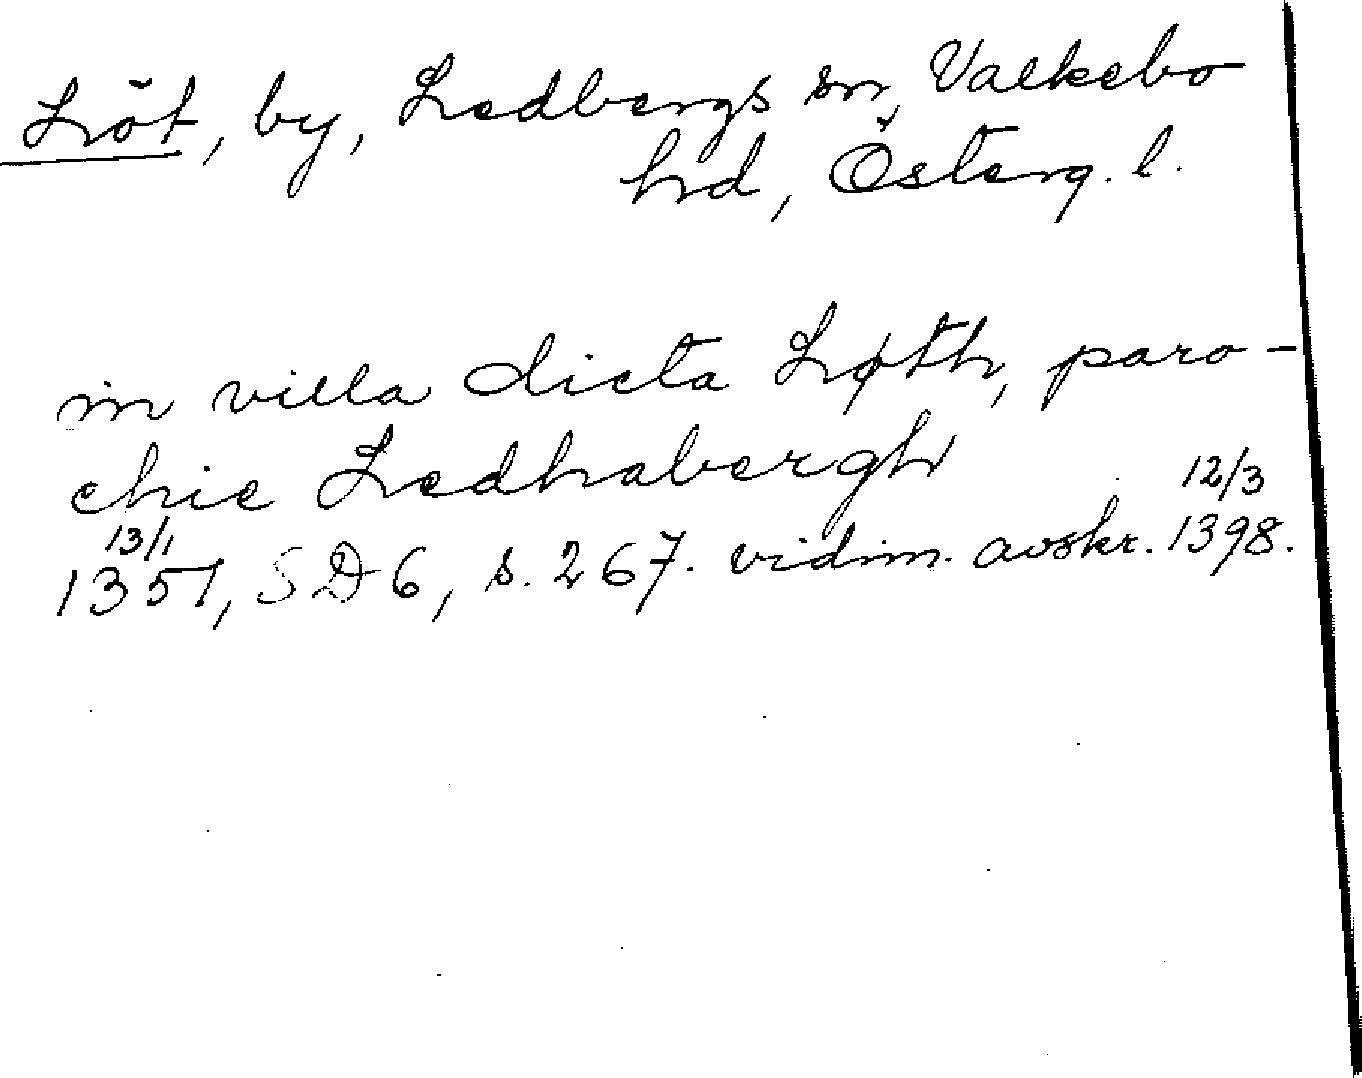 Löt, by, Ledbergs sn, Valkebo
hd, Österg. l.
in villa dicta Løth, paro-
chie Ledhabergh
13/1 12/3
1351, SD 6, s. 267. vidim. avskr. 1398.